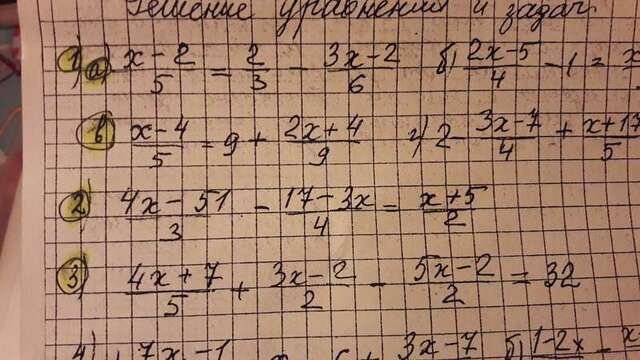 Решение уравнений и задач.
1) а) x-2/5 = 2/3 - 3x-2/6 б) 2x-5/4 - 1 = x
в) x-4/5 = 9 + 2x+4/9 г) 2 - 3x-7/4 + x+17/5
2) 4x-51/3 - 17-3x/4 = x+5/2
3) 4x+7/5 + 3x-2/2 - 5x-2/2 = 32
4) 7x-1 6+ 3x-7 б) 1-2x - x